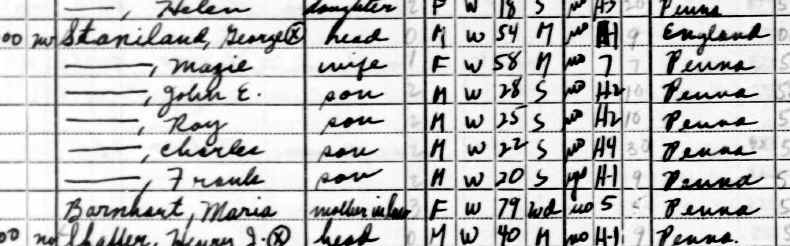 ——, Helen daughter 2 F W 18 S no H-3 30 Penna 5
00 no Staniland, George ⓧ head 0 M W 54 M no H-1 9 England 0
——, Mazie wife 1 F W 58 M no 7 7 Penna 5
——, John E. son 2 M W 28 S no H2 10 Penna 5
——, Roy son 2 M W 25 S no H2 10 Penna 5
——, Charles son 2 M W 22 S no H4 30 Penna 5
——, Frank son 2 M W 20 S yes H-1 9 Penna 5
Barnhart, Maria mother in law F W 79 Wd no 5 5 Penna 5
00 no Shaffer, Henry J. ⓧ head M W 40 M no H-1 Penna